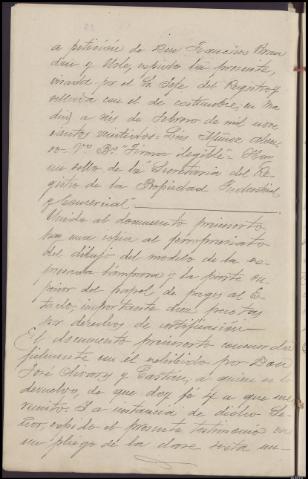 a petición de Don Francisco Bran
dau y Ubls, expido la presente,
visada por el Sr. Jefe del Registro y
sellada con el de costumbre, en Ma
drid a seis de febrero de mil nove
cientos veintidos = Luis Alvarez
Vº Bº Firma ilegible = Hay
un sello de la Secretaria del Re
gistro de la Propiedad Industrial
y comercial.
Unida al documento preinserto
hay una copia al ferroprusiato
del dibujo del modelo de la ex
presada lámpara y la parte su
perior del papel de pagos al Es
tado, importante diez pesetas
por derechos de certificación =
El documento preinserto concuerda
fielmente con el exhibido por Don
José Livory y Castién, a quien se lo
devuelvo, de que doy fe y a que me
remito. I a instancia de dicho Se
ñor, expido el presente testimonio en
un pliego de la clase sexta nu